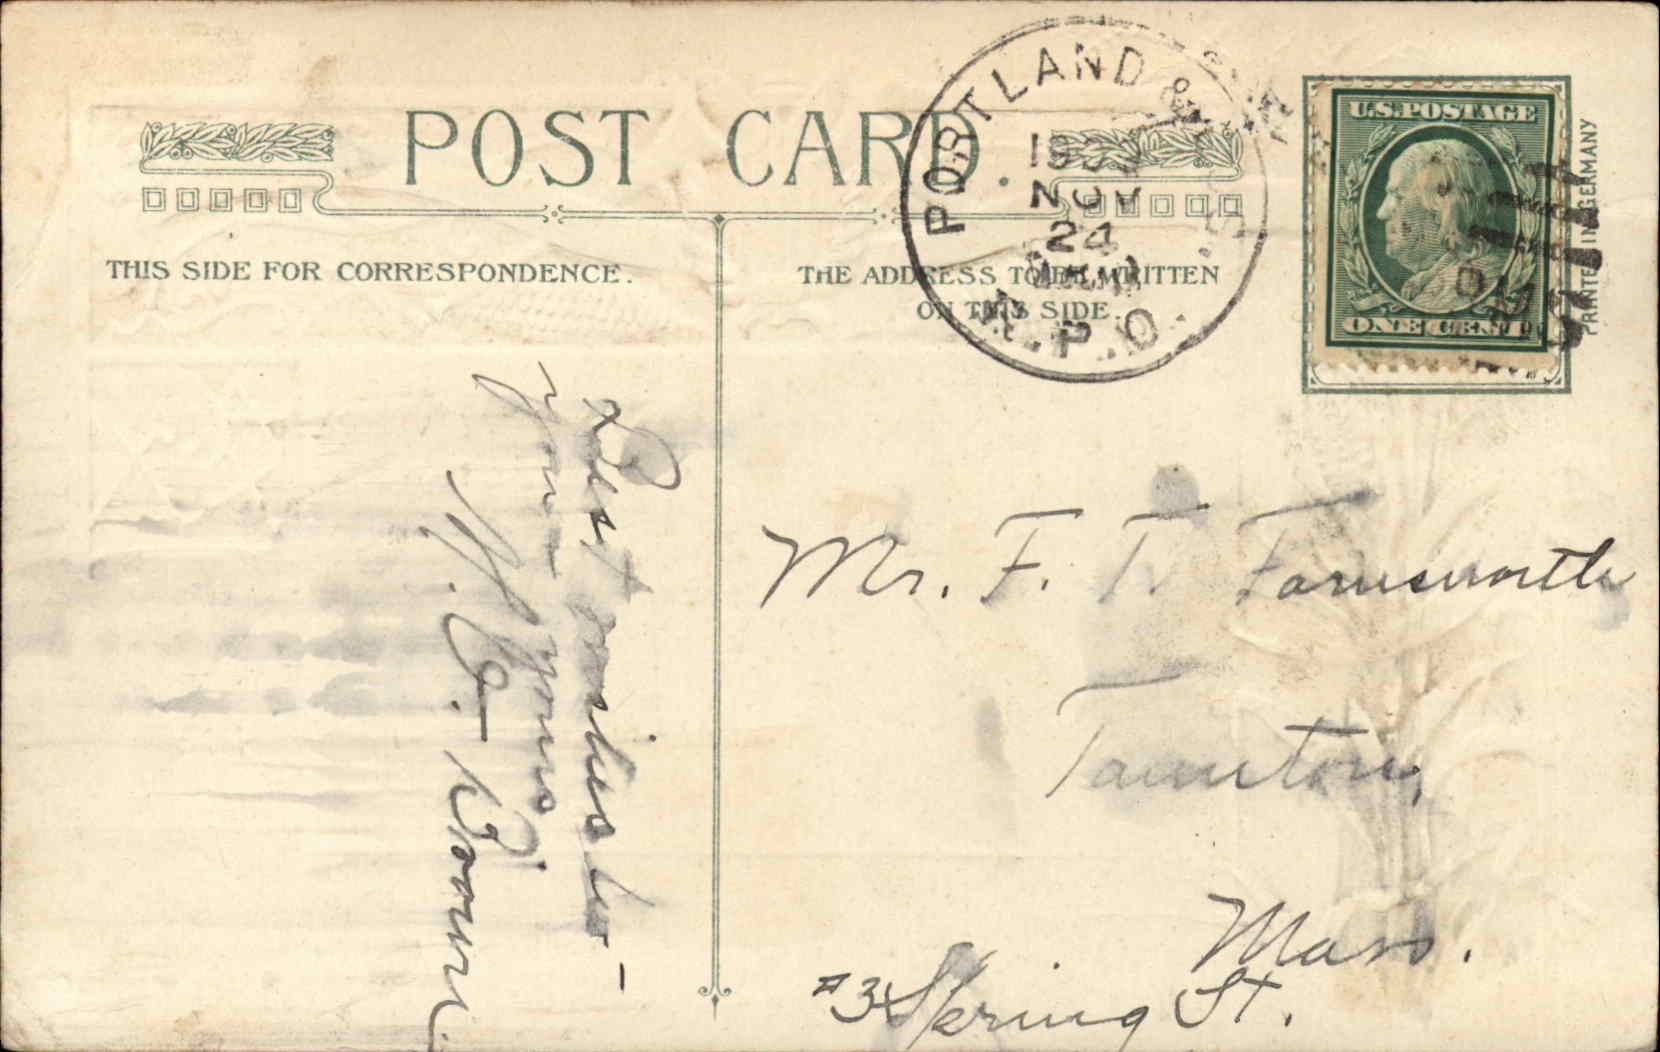 POST CARD.
THIS SIDE FOR CORRESPONDENCE.
THE ADDRESS TO BE WRITTEN
ON THIS SIDE.
PORTLAND &
NOV
24
R.P.O.
U.S. POSTAGE
ONE CENT
PRINTED IN GERMANY
Best wishes to
you
yours
W. G. Brown
Mr. F. T. Farnsworth
Taunton,
Mass.
#3 Spring St.